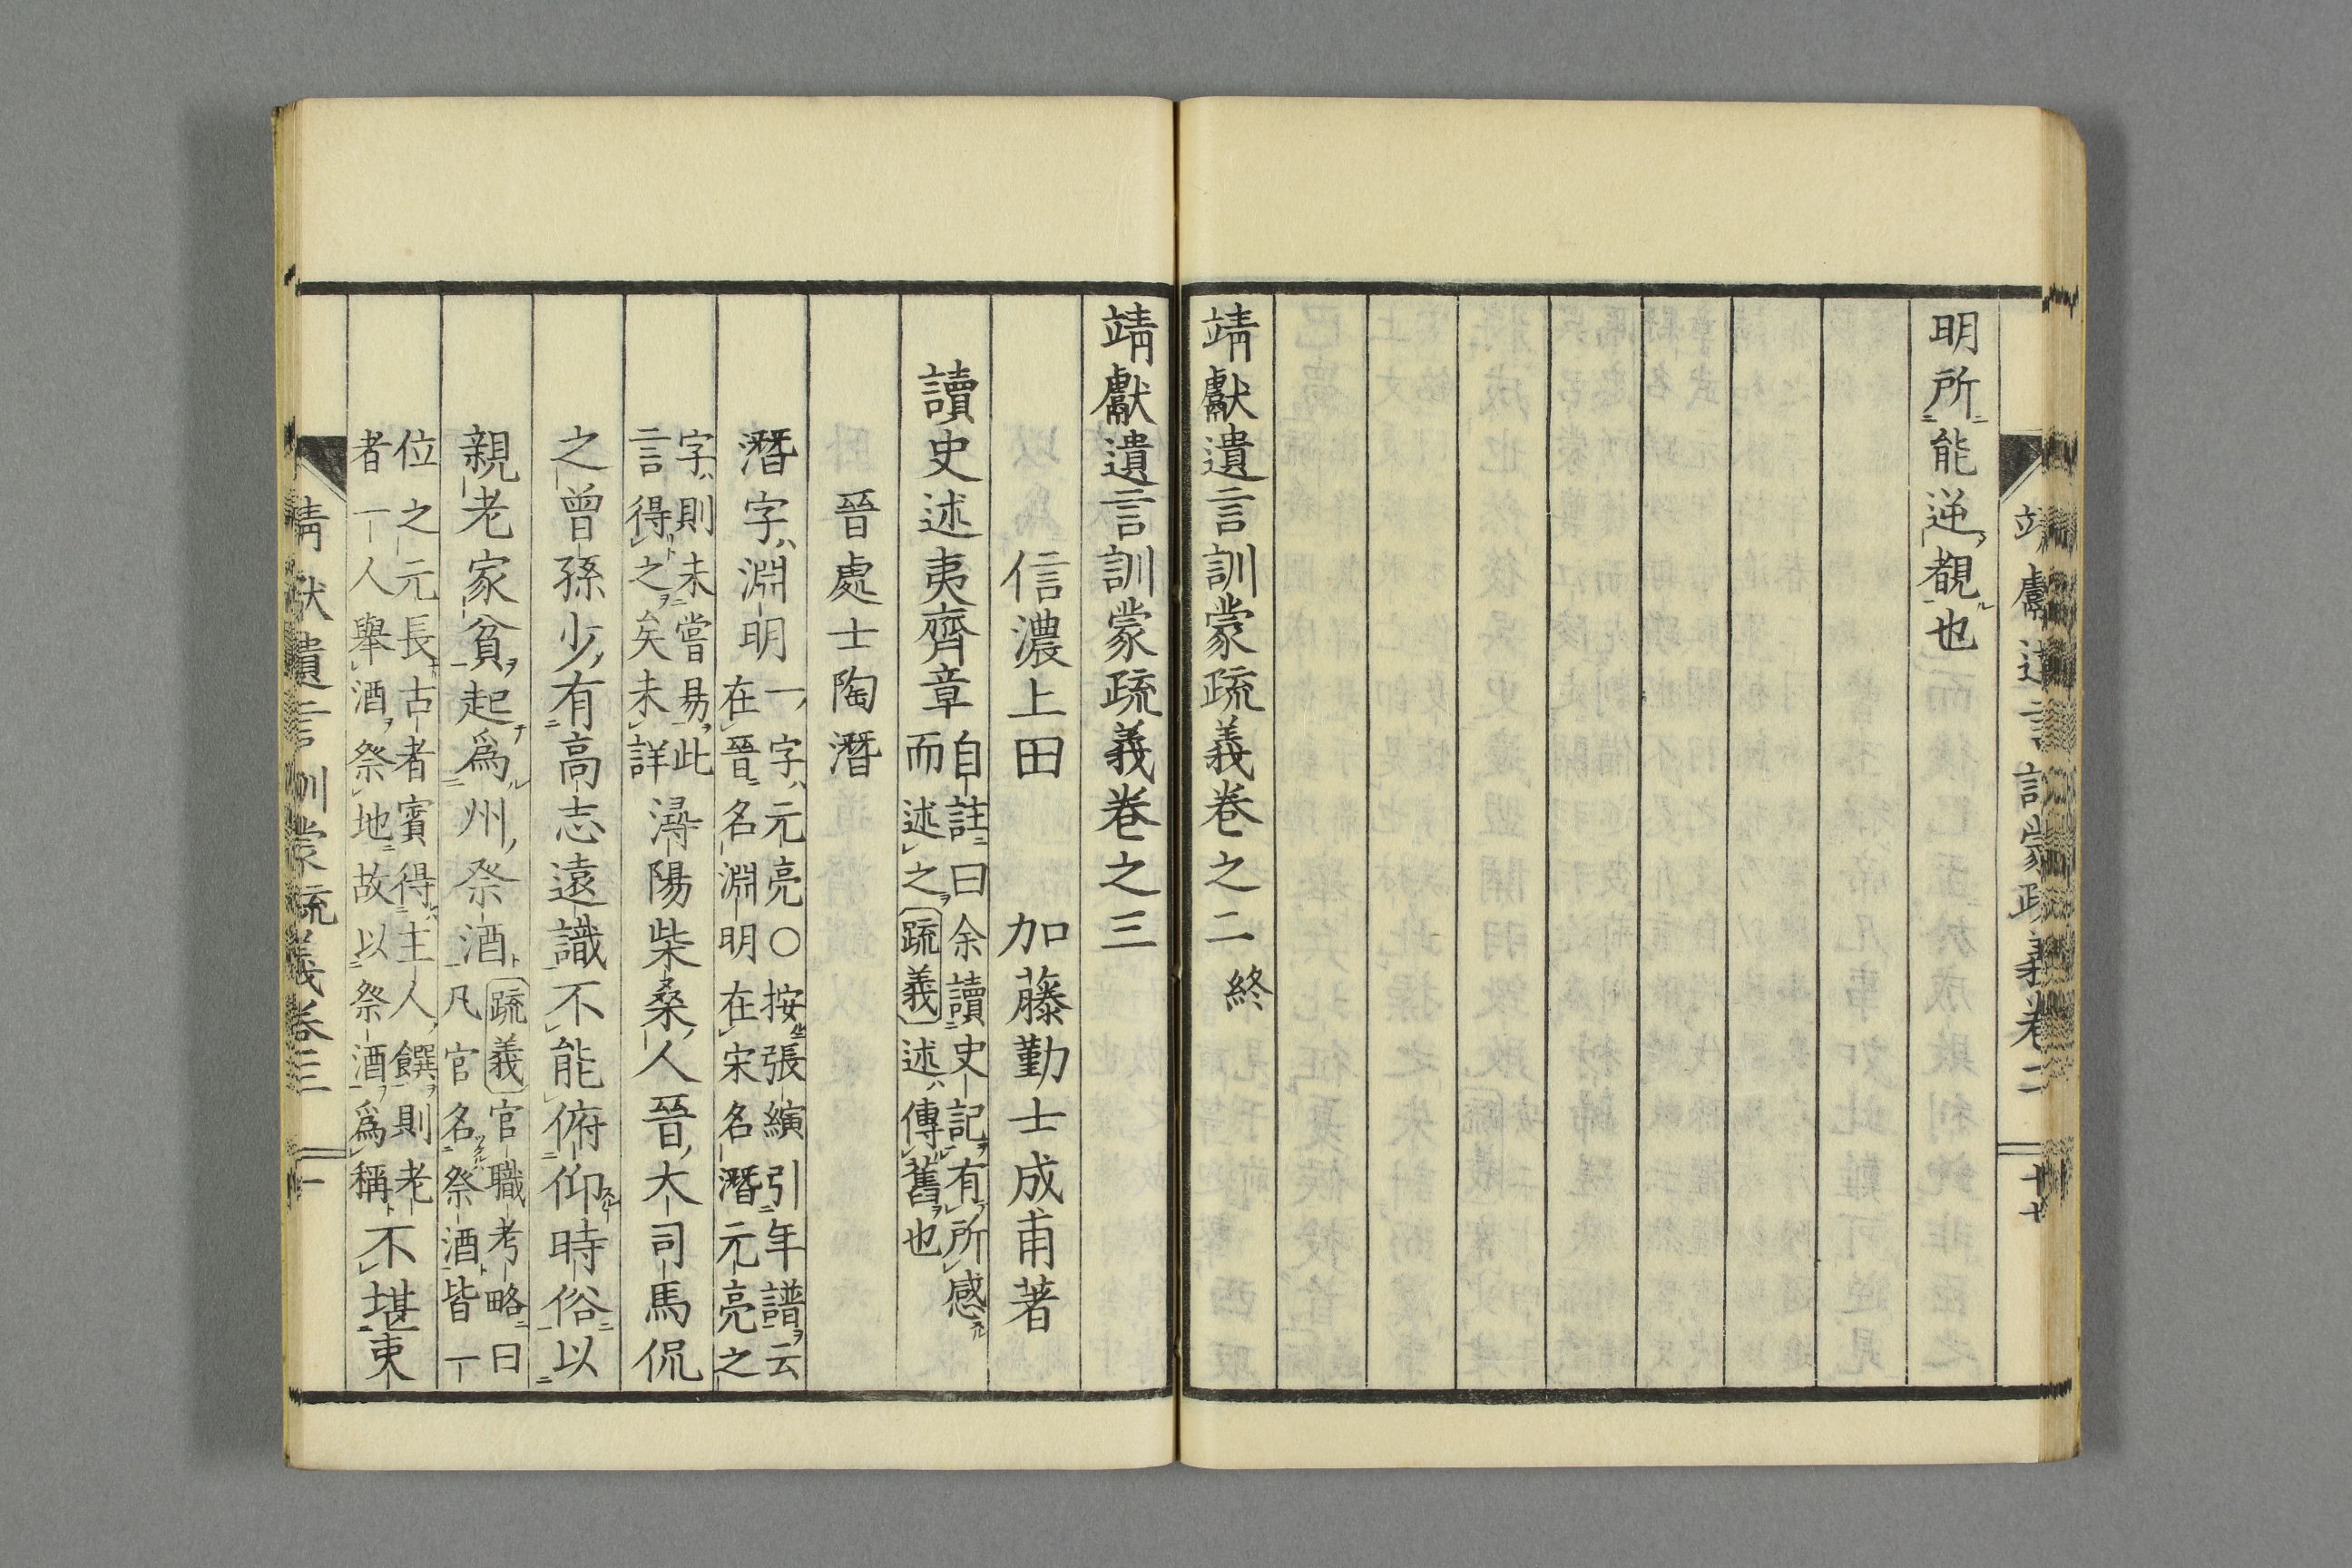 明所能逆覩也
靖獻遺言訓蒙疏義卷之二終
靖獻遺言訓蒙疏義卷之三
信濃上田 加藤勤士成甫著
讀史述夷齊章
自註曰余讀史記有所感
而述之疏義述傳舊也
晉處士陶潛
潛字淵明
一字元亮〇按張縯引年譜云
在晉名淵明在宋名潛元亮之
字則未嘗易此
言得之矣未詳
潯陽柴桑人晉大司馬侃
之曾孫少有高志遠識不能俯仰時俗以
親老家貧起爲州祭酒
疏義官職考略曰
凡官名祭酒皆一
位之元長古者賓得主人饌則老
者一人舉酒祭地故以祭酒爲稱
不堪吏
靖獻遺言訓蒙疏義卷三 一